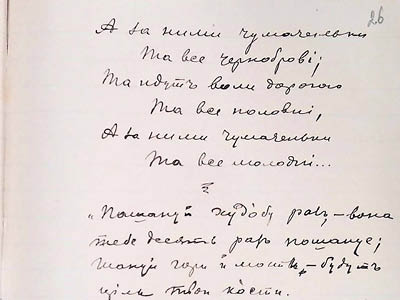 26
А за ними чумаченьки
Та все чорноброві;
Та идуть воли дорогою
Та все половиі,
А за ними чумаченьки
Та все молодиі...
„Пошануй худобу разъ, – вона
тебе десять разъ пошануе;
шануй гори й мости, – будуть
цілы твои кости.